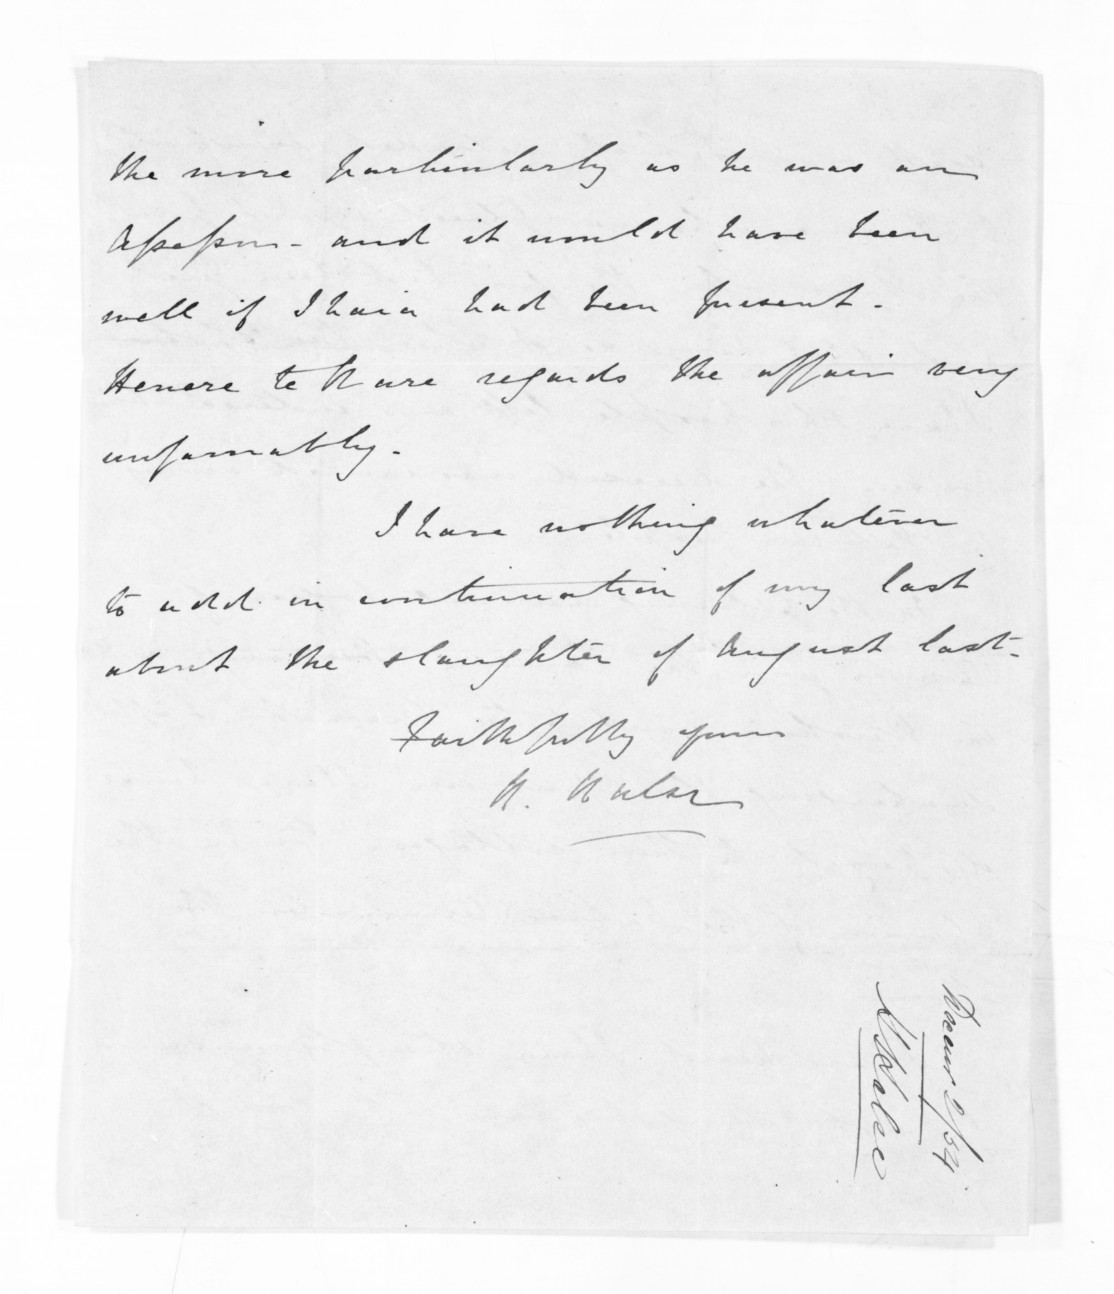 the more particularly as he was an
Assessor - and it would have been
well if Ihaia had been present.
Henare te Kure regards the affair very
unfavorably.
I have nothing whatever
to add in continuation of my last
about the slaughter of August last.
Faithfully yours
H. Halse
H Halse
Decemr 2/54.